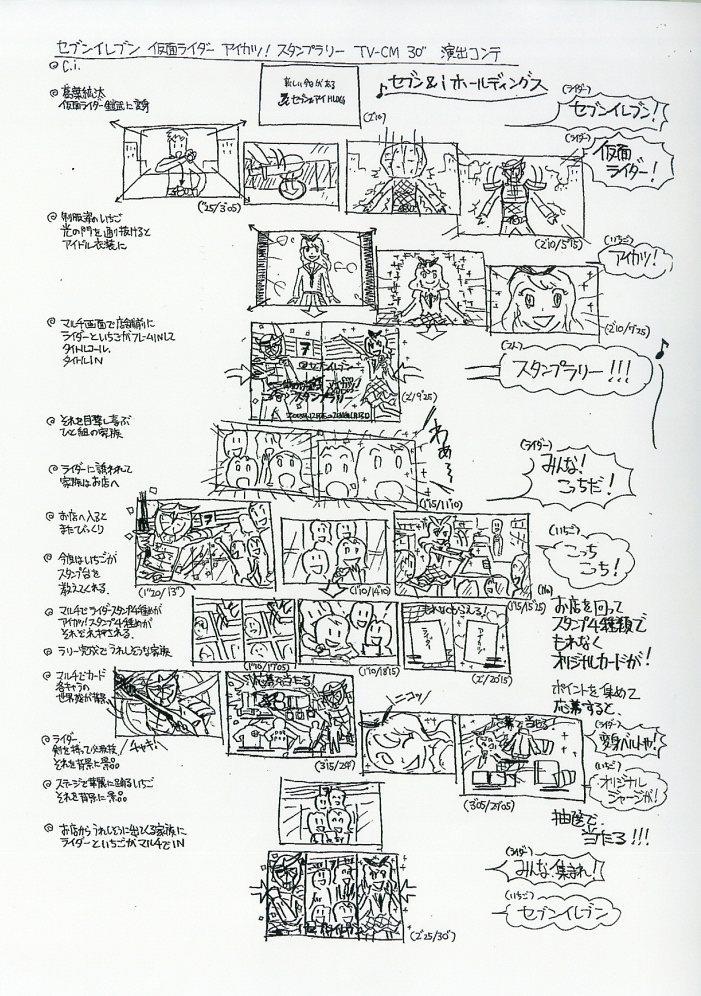 セブンイレブン 仮面ライダー アイカツ! スタンプラリー TV-CM 30" 演出コンテ
◎ C.i.
新しい今日がある
セブン&アイHLDGS
♪セブン&iホールディングス
(2'10)
(ライダー)
セブンイレブン!
◎ 葛葉紘汰
仮面ライダー鎧武に変身
(ライダー)
仮面
ライダー!
("25/3"05)
(2'10/5"15)
◎ 制服姿のいちご
光の門を通り抜けると
アイドル衣装に
(いちご)
アイカツ!
(2'10/7"25)
◎ マルチ画面で店舗前に
ライダーといちごがフレームINして
タイトルコール、
タイトルIN
セブンイレブン
スタンプラリー
(2'/9"25)
スタンプラリー!!!
♪
◎ それを目撃し喜ぶ
ひと組の家族
わあ〜
(1'15/11"10)
◎ ライダーに誘われて
家族はお店へ
(ライダー)
みんな!
こっちだ!
◎ お店へ入ると
またびっくり
(1'20/13")
(1'10/14"10)
(1'15/15"25)
(いちご)
こっち
こっち!
◎ 今度はいちごが
スタンプ台を
教えてくれる。
(Na)
お店を回って
スタンプ4種類で
もれなく
オリジナルカードが!
◎ マルチでライダースタンプ4種めが
アイカツ!スタンプ4種めが
それぞれ押される。
もれなくもらえる!
(1'10/17"05)
(1'10/18"15)
(2'/20"15)
◎ ラリー完成でうれしそうな家族
◎ マルチでカード
各キャラの
世界感が背景
ポイントを集めて
応募すると、
応募で当たる
チャキ!
(3'15/24")
ニコッ
応募で当たる!
(3'05/27"05)
(ライダー)
変身ベルトや!
(いちご)
オリジナル
ジャージが!
◎ ライダー
それを背景に景品
◎ ステージで華麗に踊るいちご
それを背景に景品
抽選で、
当たる!!!
◎ お店からうれしそうに出てくる家族に
ライダーといちごがマルチでIN
(ライダー)
みんな、集まれ!
(いちご)
セブンイレブン
(2'25/30")